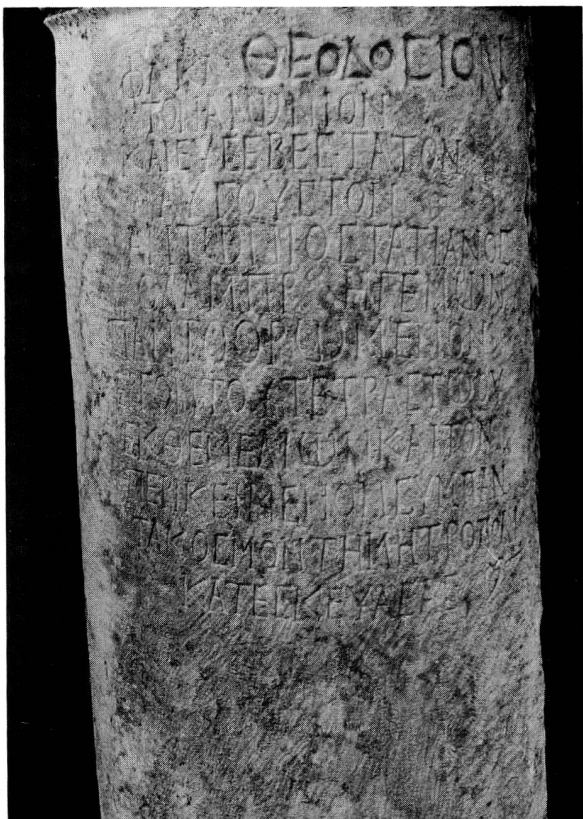 ΦΛ ΚΛ ΘΕΟΔΟΣΙΟΝ
ΤΟΝ ΑΙΩΝΙΟΝ
ΚΑΙ ΕΥΣΕΒΕΣΤΑΤΟΝ
ΑΥΓΟΥΣΤΟΝ
ΑΝΤΩΝΙΟΣ ΤΑΤΙΑΝΟΣ
Ο ΛΑΜΠΡ ΗΓΕΜΩΝ
ΠΑΝ ΤΟ ΟΡΩΜΕΝΟΝ
ΕΡΓΟΝ ΤΟΥ ΤΕΤΡΑΣΤΟΟΥ
ΕΚ ΘΕΜΕΛΙΩΝ ΚΑΙ ΤΟΝ
ΠΕΡΙΚΕΙΜΕΝΟΝ ΣΥΜΠΑΝ
ΤΑ ΚΟΣΜΟΝ ΤΗ ΜΗΤΡΟΠΟΛΙ
ΚΑΤΕΣΚΕΥΑΣΑΣ